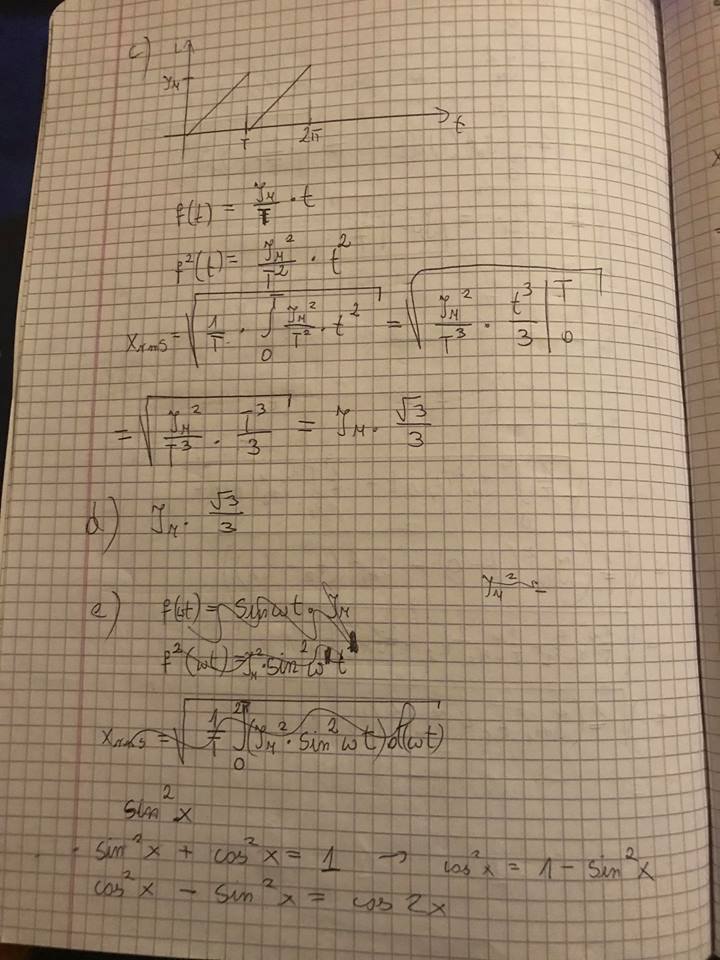 c)
i
I_M
T
2π
t
f(t) = I_M/T · t
f²(t) = I_M²/T² · t²
X_rms = √(1/T · ∫₀ᵀ I_M²/T² · t²) = √(I_M²/T³ · t³/3 |₀ᵀ)
= √(I_M²/T³ · T³/3) = I_M · √3/3
d) I_M · √3/3
I_M² =
e) f(ωt) = sinωt · I_M
f²(ωt) = I_M² · sin²ωt
X_rms = √(1/T ∫₀²π (I_M² · sin²ωt) d(ωt))
sin²x
sin²x + cos²x = 1 → cos²x = 1 - sin²x
cos²x - sin²x = cos2x